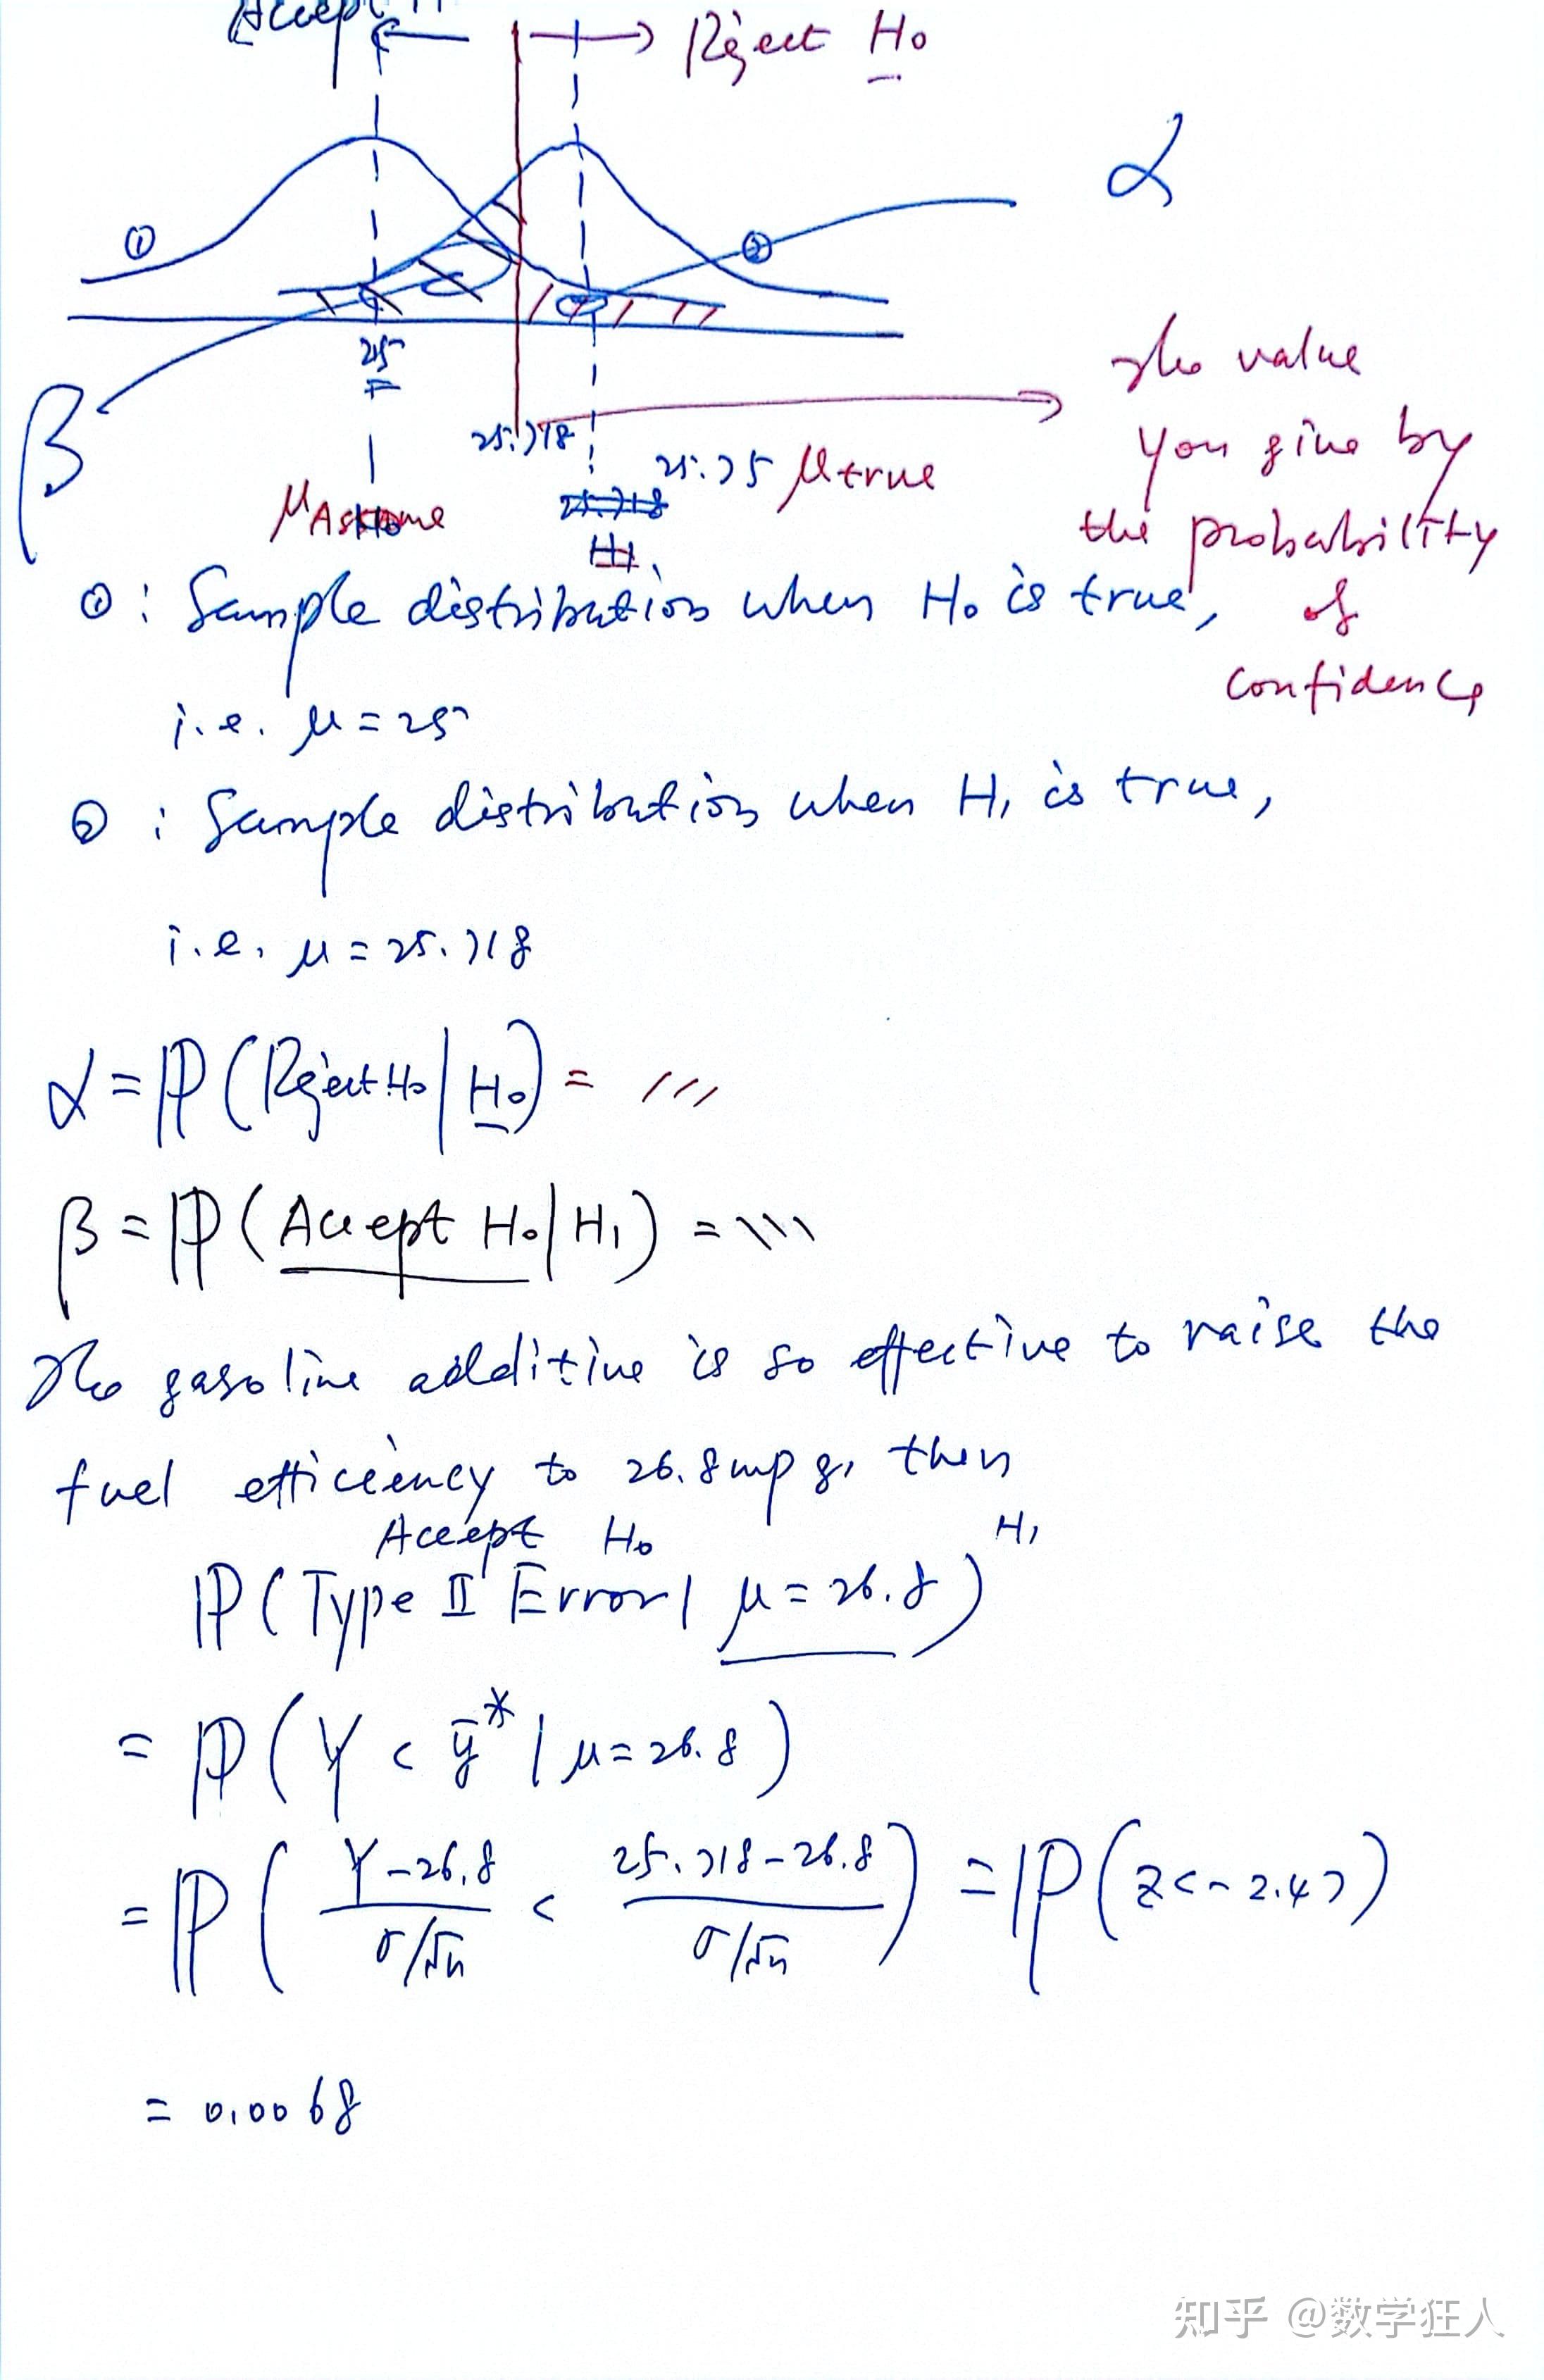 Accept H
Reject H₀
α
①
②
25
β
25.718
25.75 μtrue
25.718
H₁
The value
you give by
the probability
of
confidence
①: Sample distribution when H₀ is true,
i.e. μ = 25
②: Sample distribution when H₁ is true,
i.e. μ = 25.718
α = ℙ(Reject H₀ | H₀) = ///
β = ℙ(Accept H₀ | H₁) = \\\
The gasoline additive is so effective to raise the
fuel efficiency to 26.8mpg, then
Accept H₀ H₁
ℙ(Type II Error | μ = 26.8)
= ℙ(Y < ȳ* | μ = 26.8)
= ℙ((Y - 26.8)/(σ/√n) < (25.718 - 26.8)/(σ/√n)) = ℙ(Z < -2.47)
= 0.0068
知乎 @数学狂人